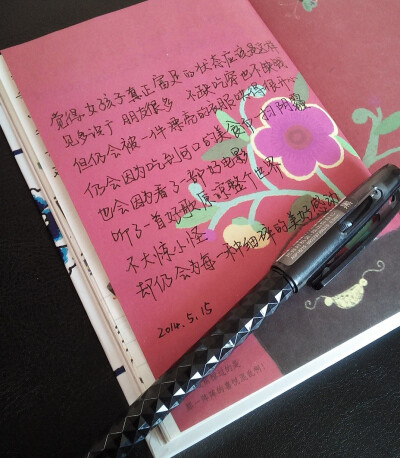 觉得女孩子真正富足的状态应该是这样
见多识广 朋友很多 不缺吃穿也不缺钱
但仍会被一件漂亮的衣服哄得很
仍会因为吃到可口的美食 一扫阴霾
也会因为看了一部好电影
听了一首好歌原谅整个世界
不大惊小怪
却仍会为每一种细碎的美好感动
2014.5.15